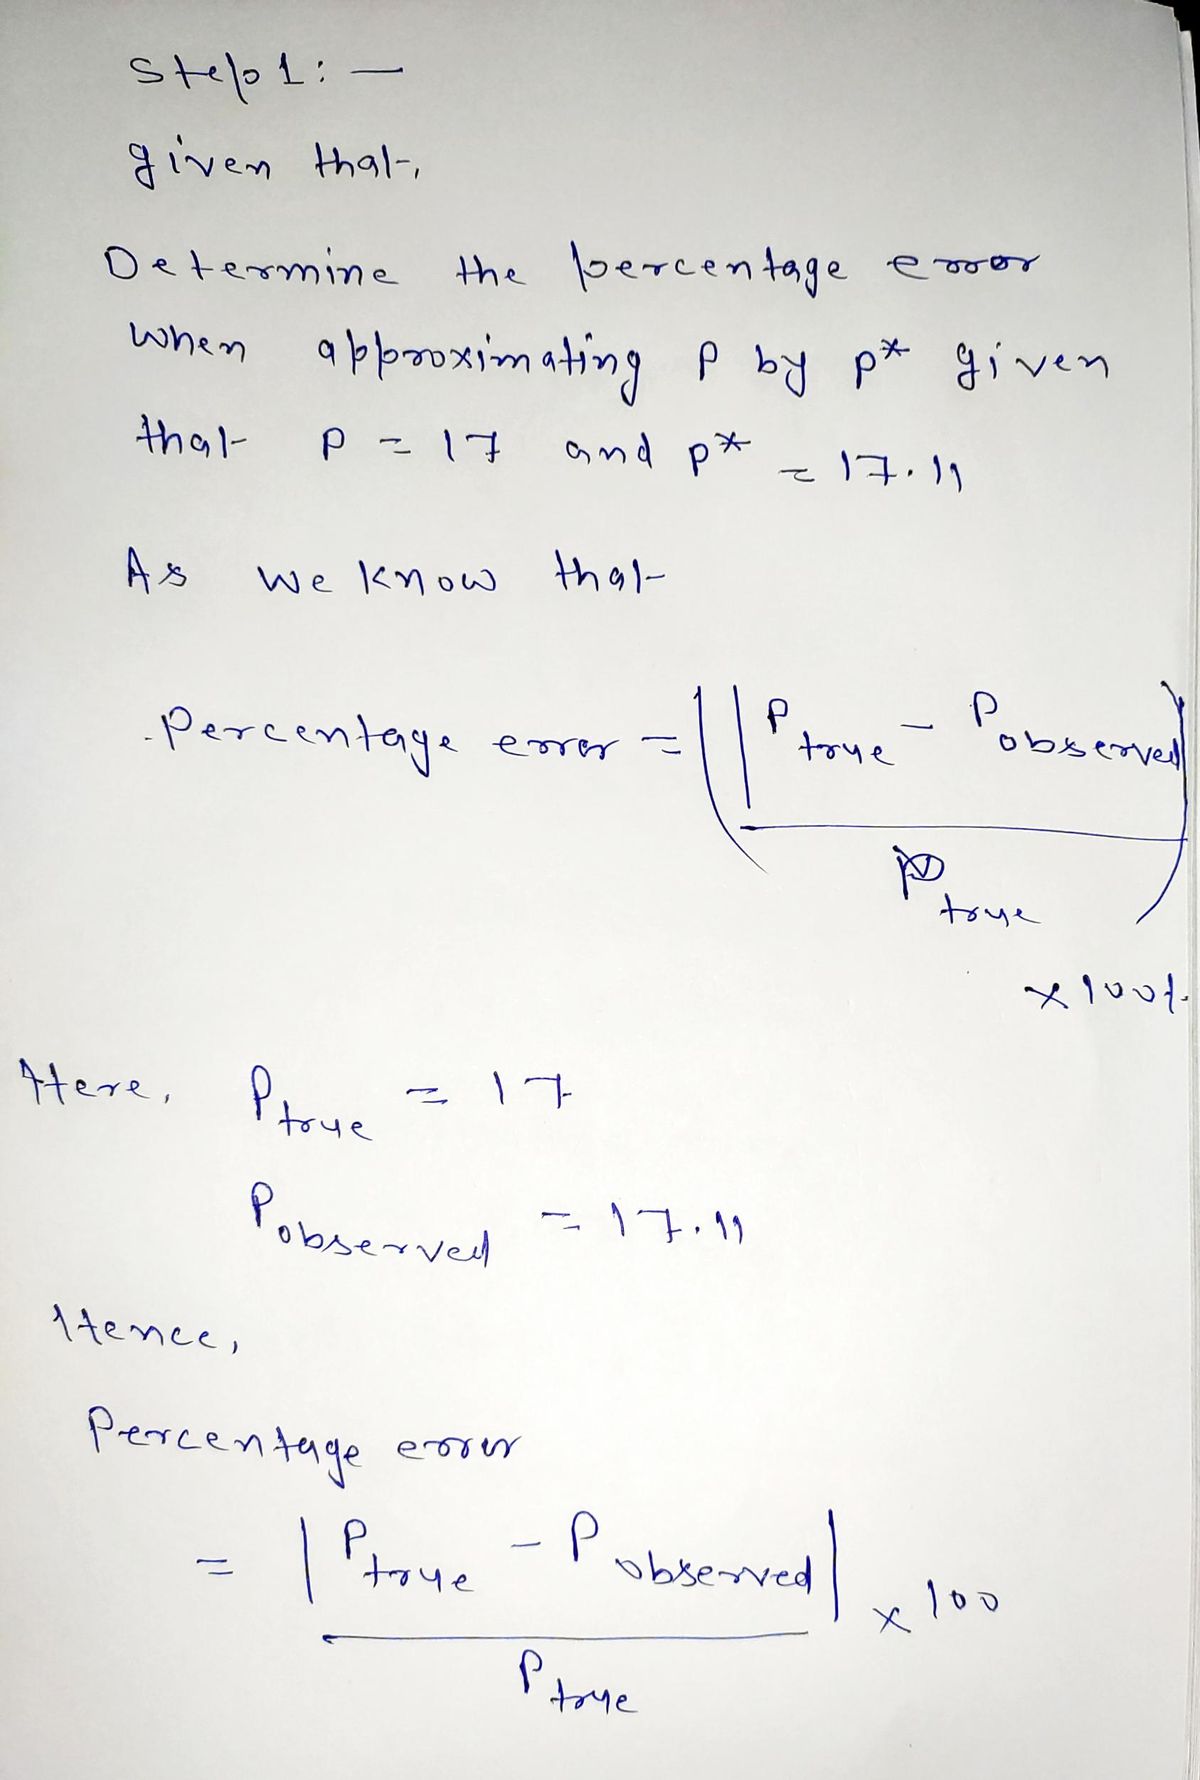 Step 1: —
given that,
Determine the percentage error
when approximating P by P* given
that P = 17 and P* = 17.11
As we know that
Percentage error = ( |P true - P observed
P true )
x 100%
Here, P true = 17
P observed = 17.11
Hence,
Percentage error
= |P true - P observed| x 100
P true